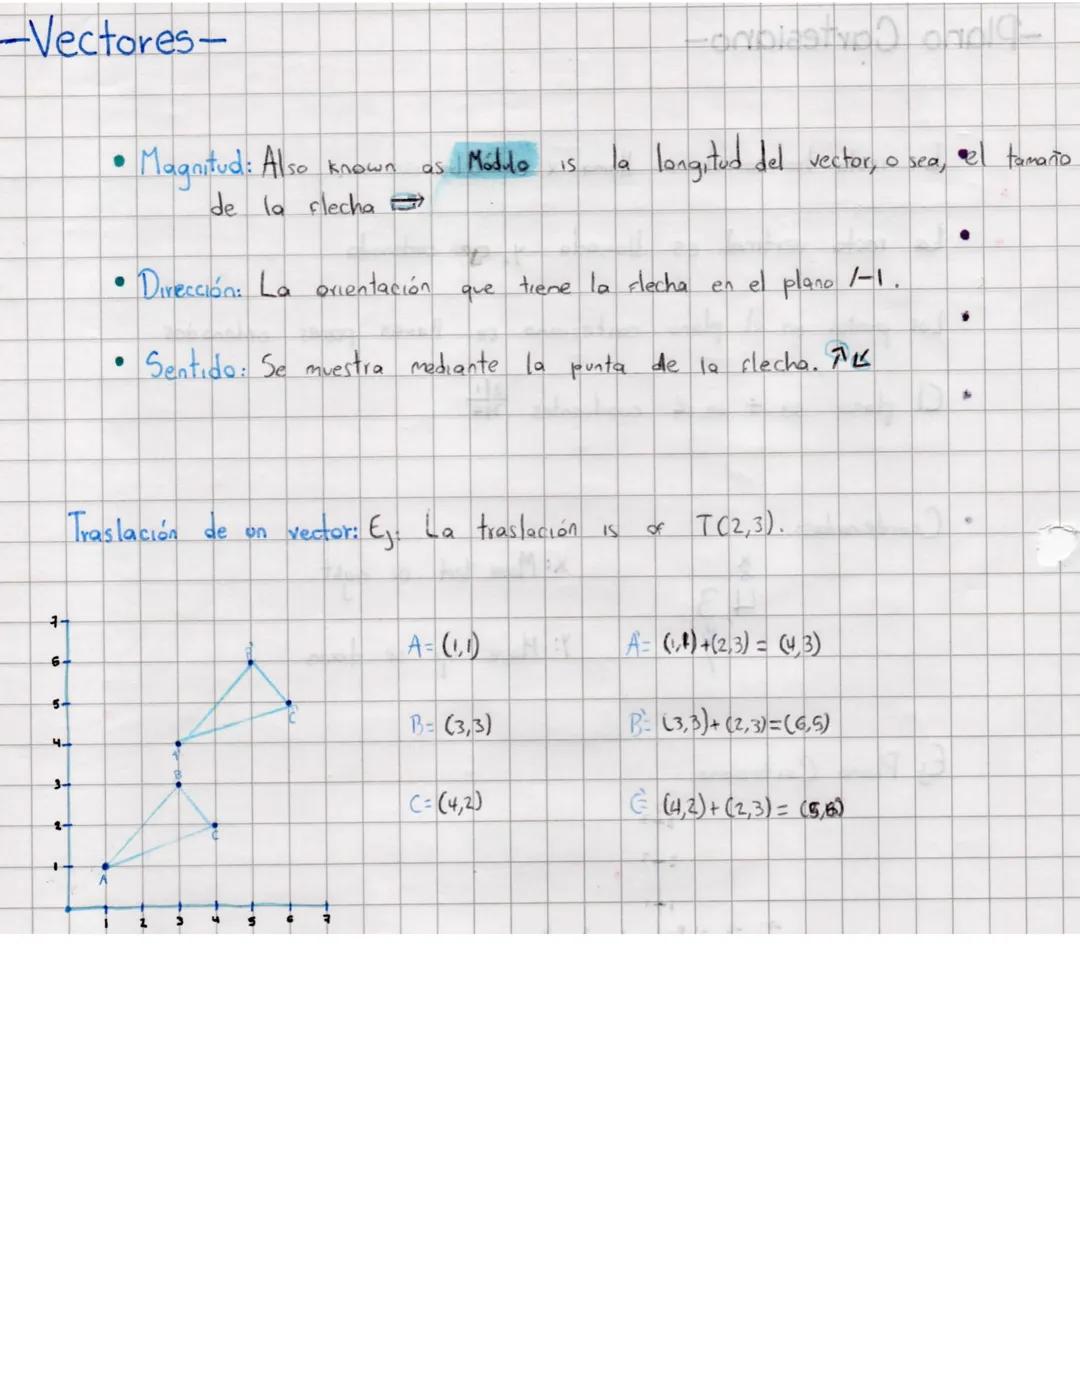 -Vectores-
• Magnitud: Also known as Módulo is la longitud del vector, o sea, el tamaño
de la flecha
• Dirección: La orientación que tiene la flecha en el plano /-\.
• Sentido: Se muestra mediante la punta de la flecha.
Traslación de un vector: Ej: La traslación is of T(2,3).
A= (1,1) A'= (1,1)+(2,3) = (4,3)
B= (3,3) B'= (3,3)+(2,3)=(6,5)
C= (4,2) C'= (4,2)+(2,3)= (5,6)
7
6
5
4
3
2
1
B'
C'
A'
B
C
A
1 2 3 4 5 6 7